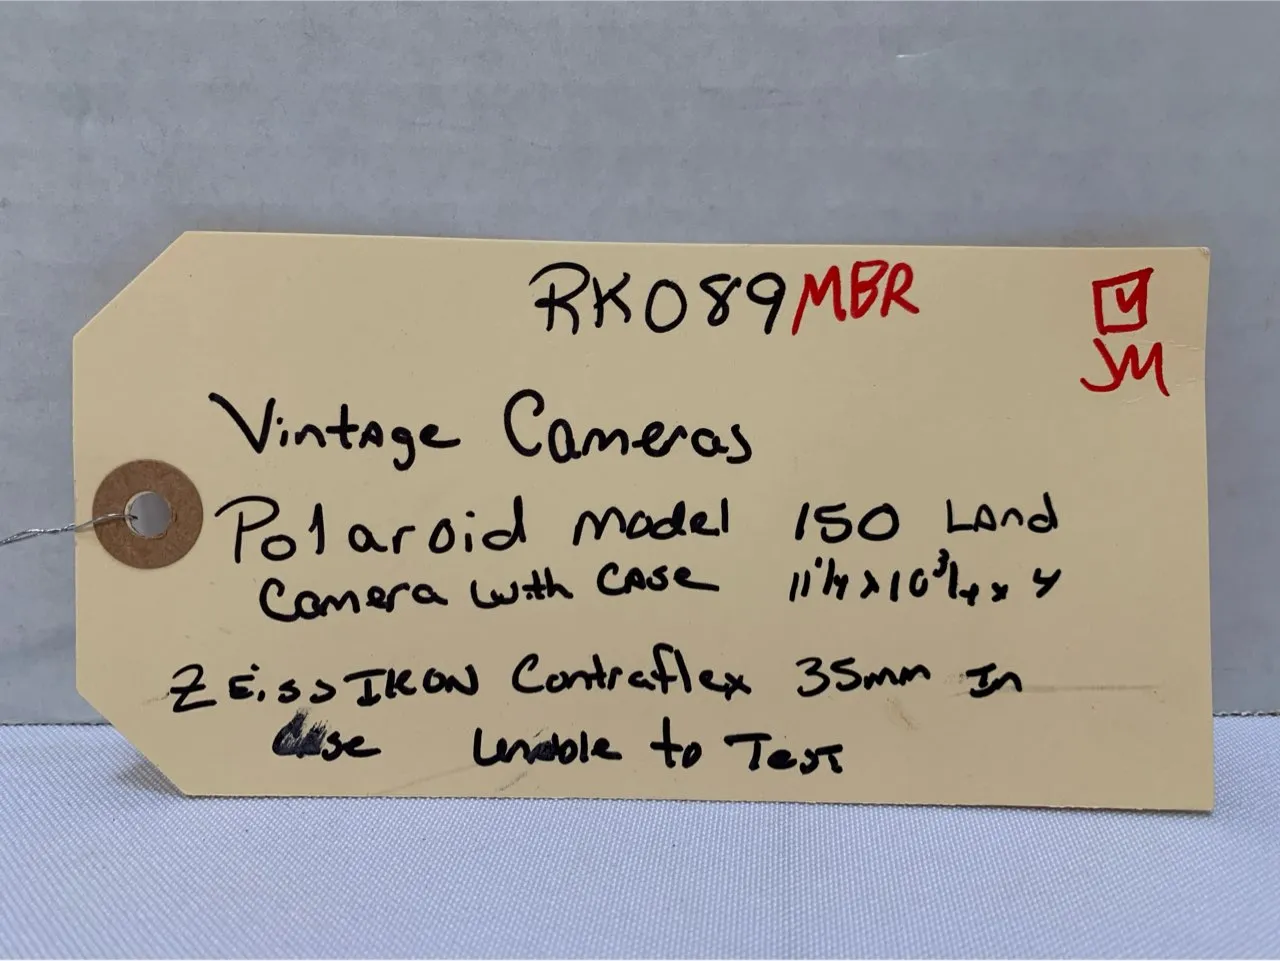 RK089 MBR
4
JM
Vintage Cameras
Polaroid model 150 Land
Camera with Case 11 1/4 x 10 3/4 x 4
Zeiss IKON Contraflex 35mm In
Case Unable to Test